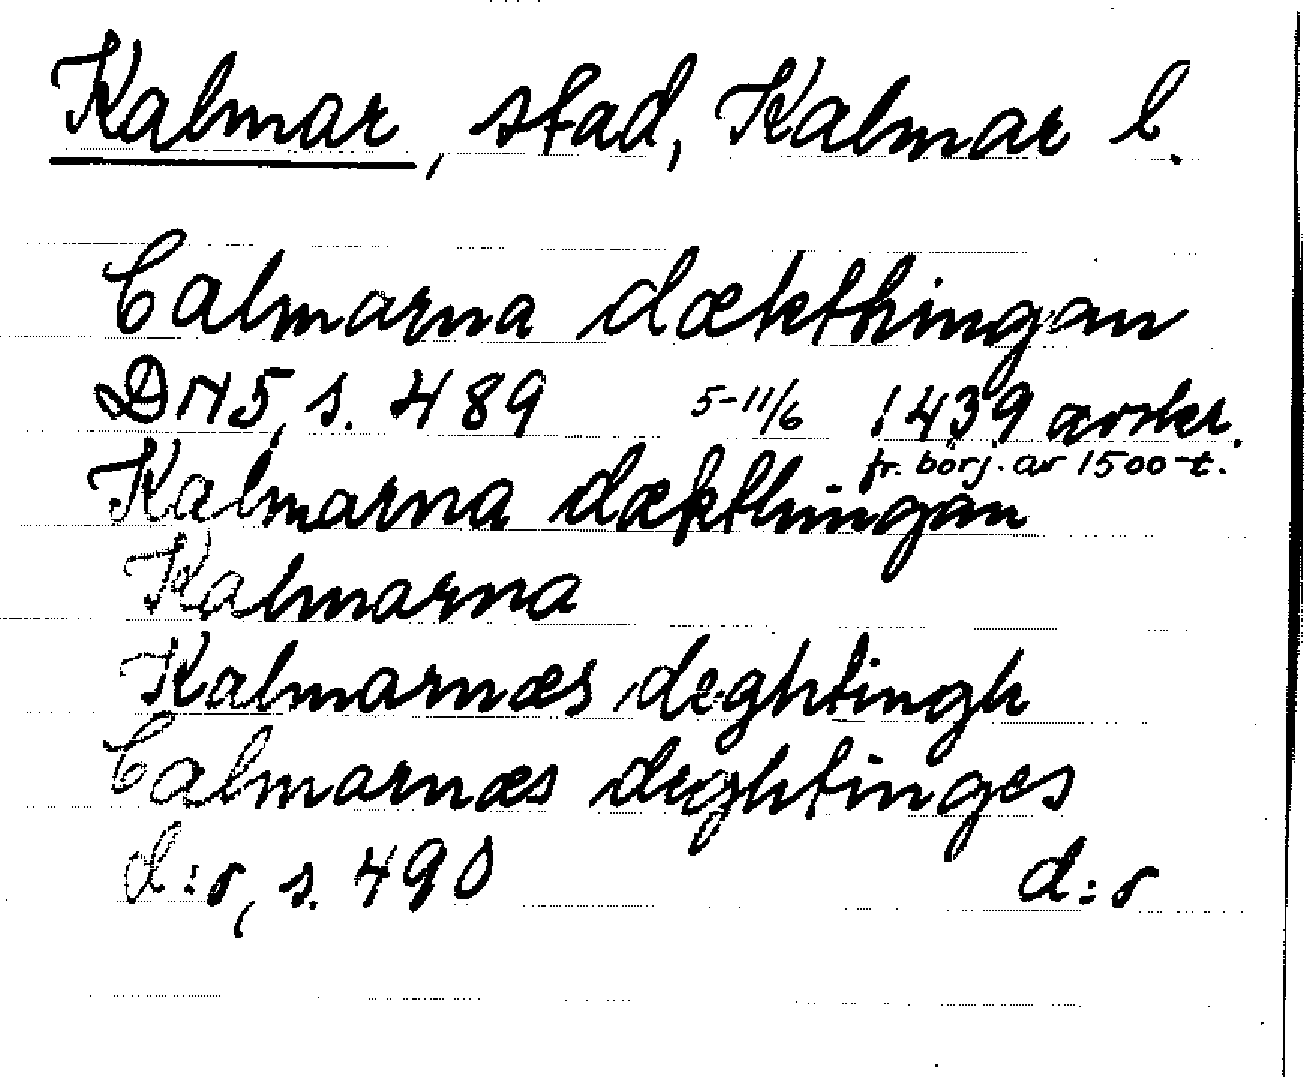 Kalmar, stad, Kalmar l.
Calmarna dækthingan
DN5, s. 489 5-11/6 1439 avskr.
fr. börj. av 1500-t.
Kalmarna dækthingan
Kalmarna
Kalmarnæs deghtingh
Calmarnæs deghtinges
d:o, s. 490 d:o